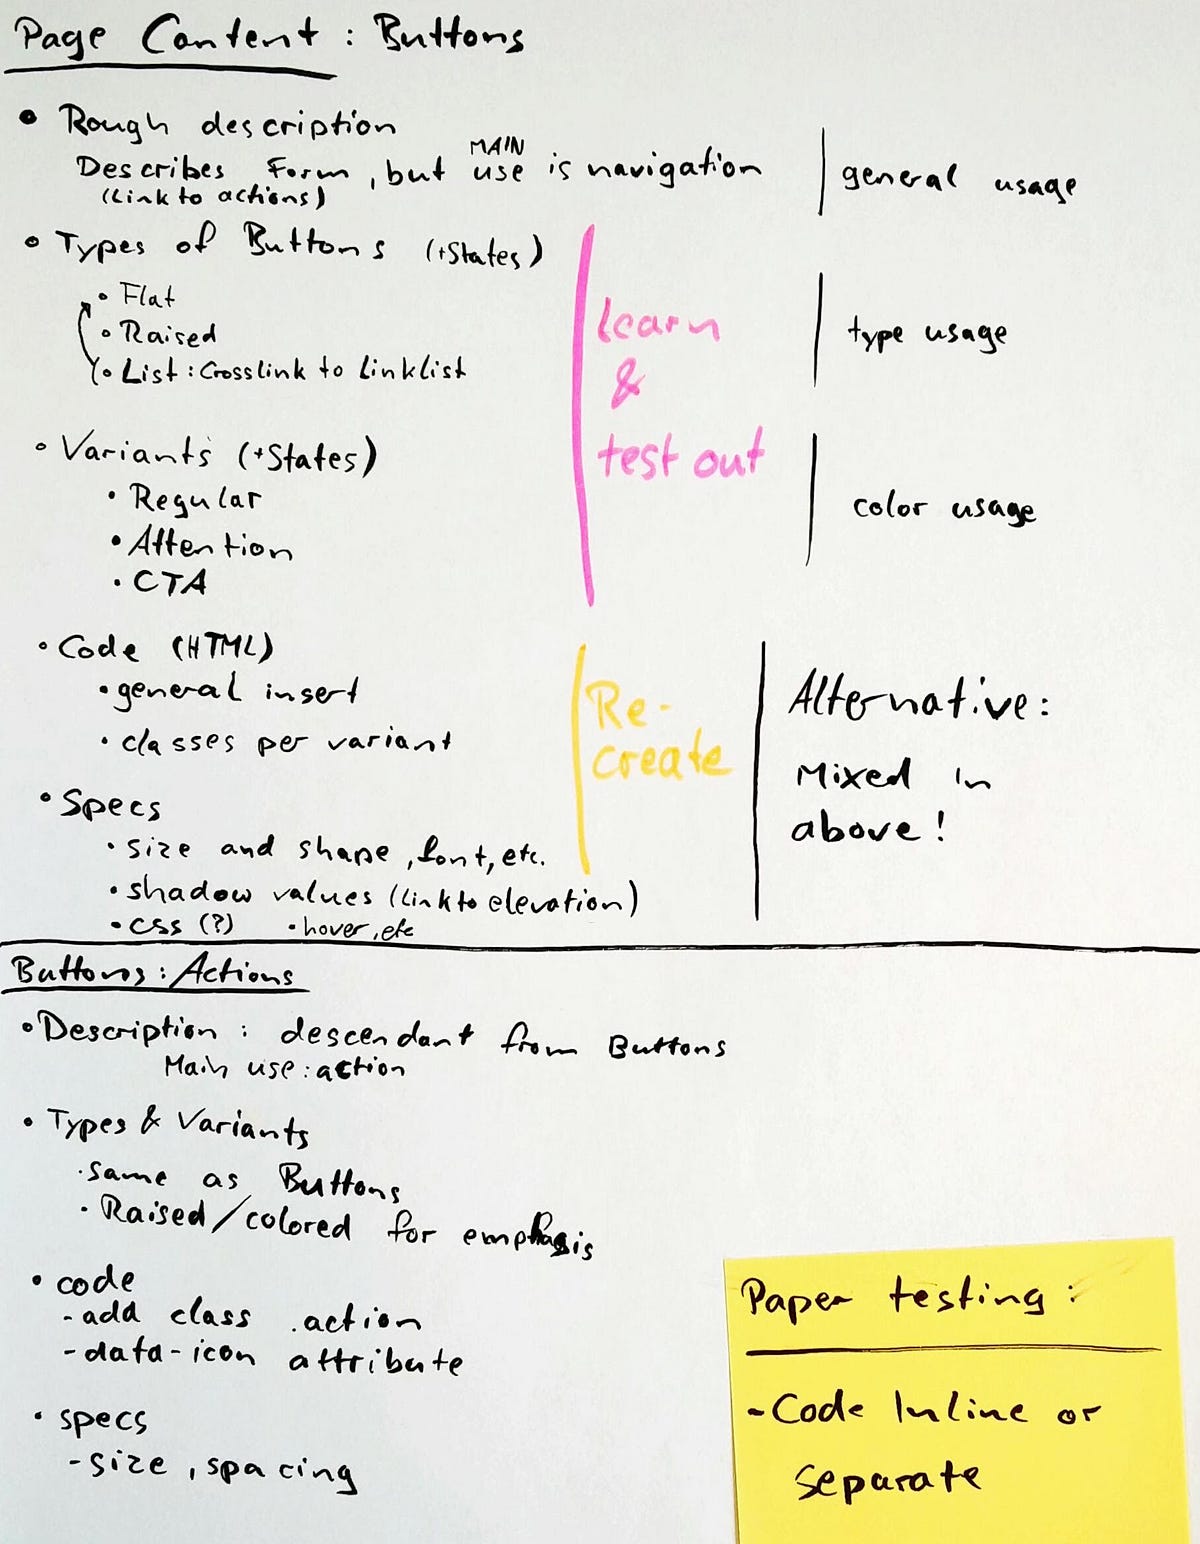 Page Content : Buttons
• Rough description
Describes Form, but MAIN use is navigation
(Link to actions)
general usage
• Types of Buttons (+States)
• Flat
• Raised
• List : Crosslink to Linklist
type usage
• Variants (+States)
• Regular
• Attention
• CTA
color usage
Learn
&
test out
• Code (HTML)
• general insert
• classes per variant
• Specs
• size and shape, font, etc.
• shadow values (Link to elevation)
• CSS (?) • hover, etc
Re-
create
Alternative:
Mixed in
above!
Buttons: Actions
• Description : descendant from Buttons
Main use: action
• Types & Variants
• same as Buttons
• Raised/colored for emphasis
• code
- add class .action
- data-icon attribute
• specs
- size, spacing
Paper testing:
- Code Inline or
separate